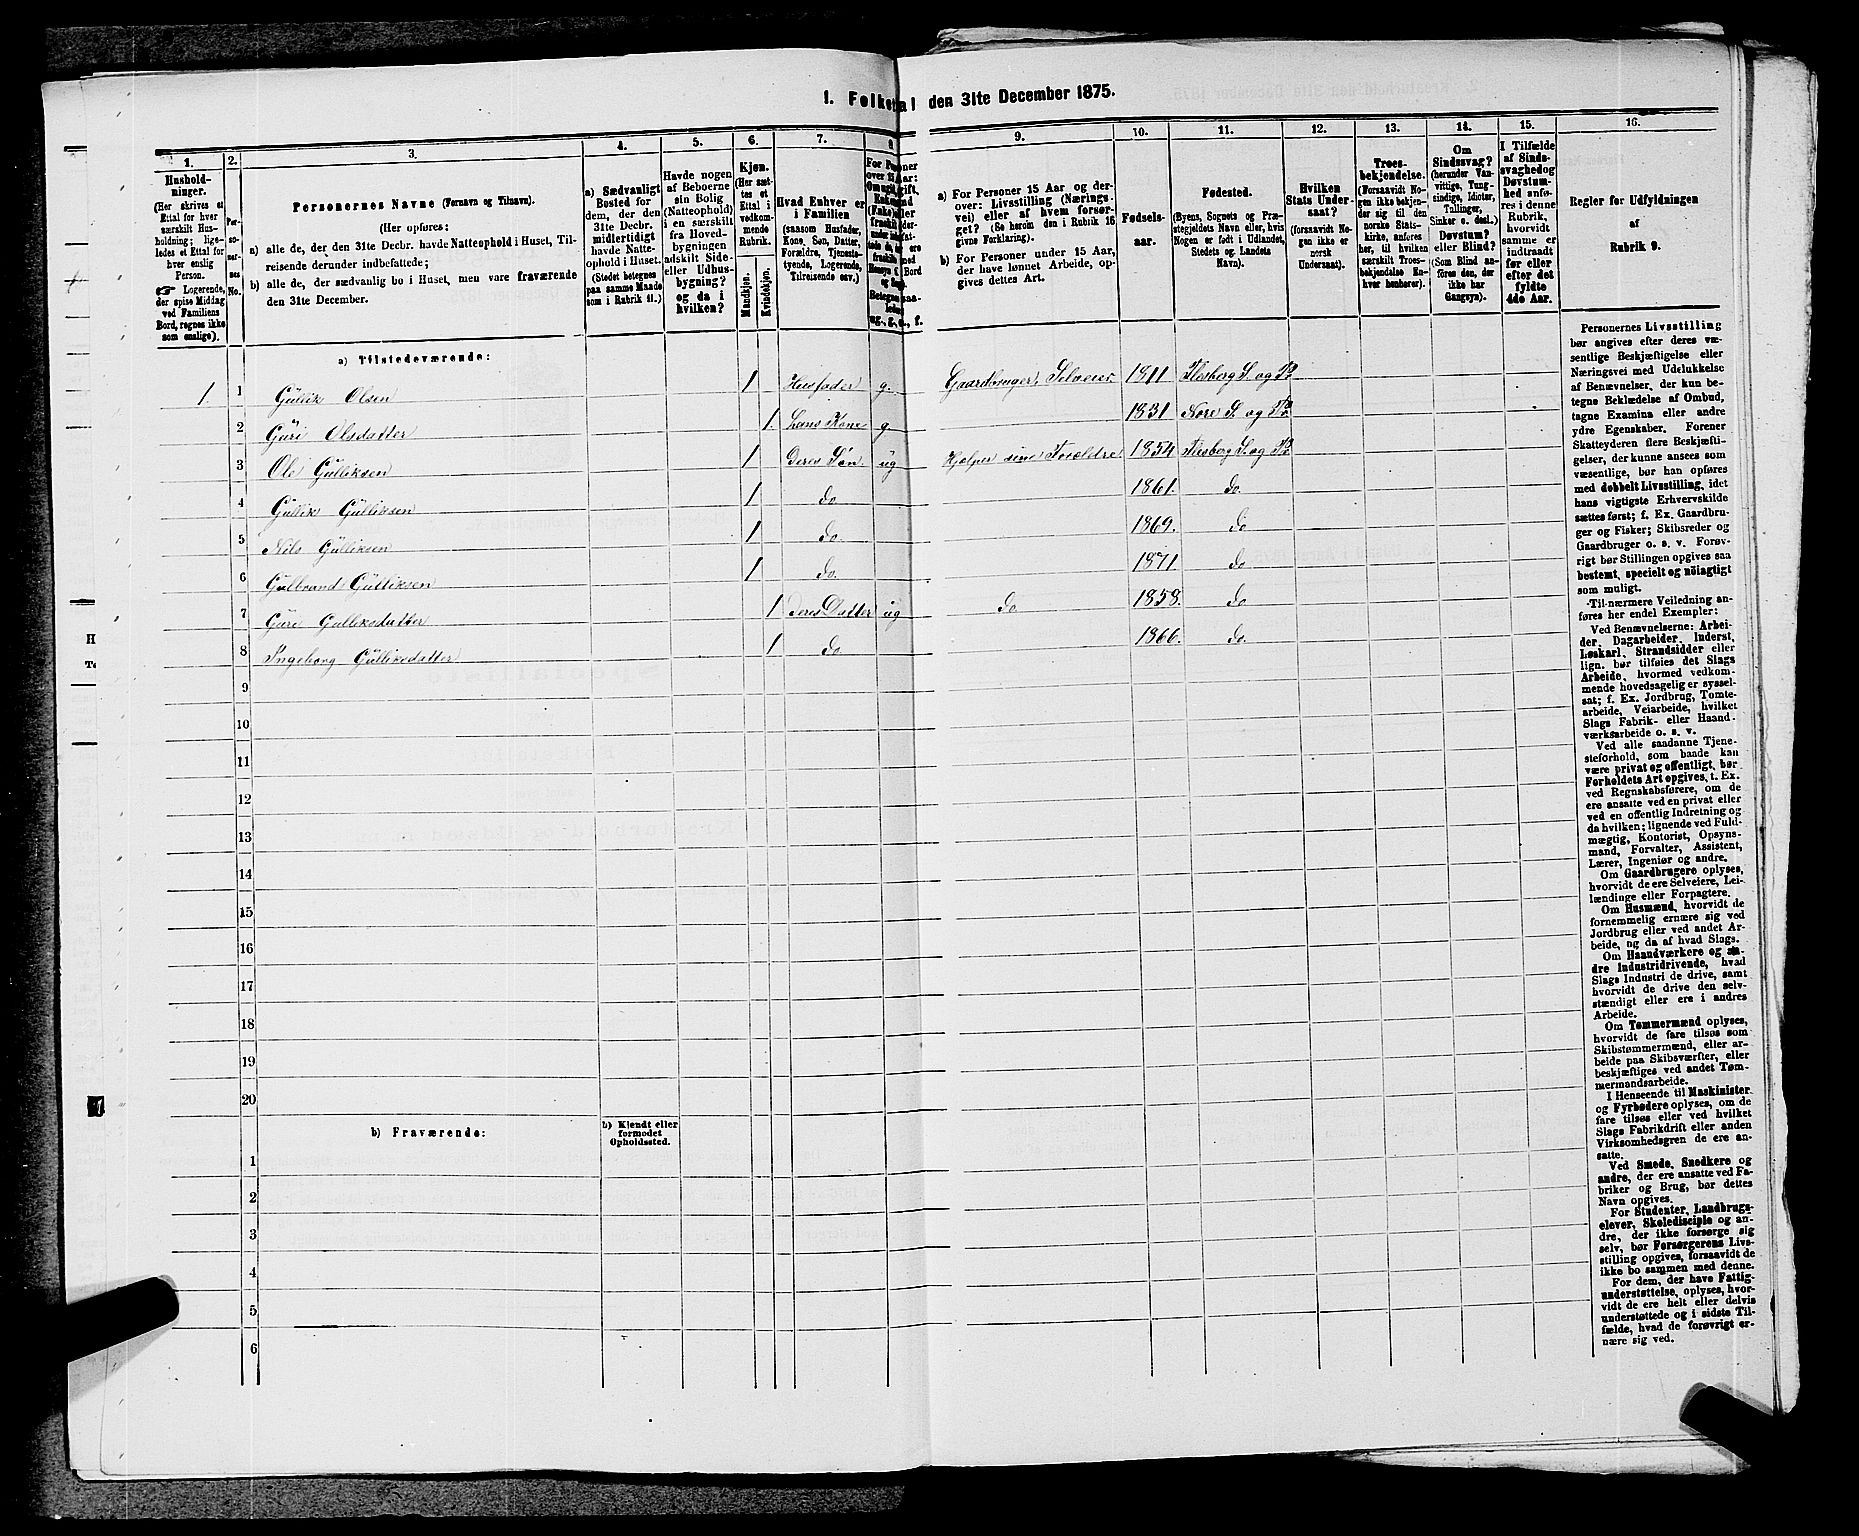 1. Folketal den 31te December 1875.
1. 2. 3. 4. 5. 6. 7. 8. 9. 10. 11. 12. 13. 14. 15. 16.
Hushold-
ninger.
(Her skrives et
Ettal for hver
særskilt Hus-
holdning; lige-
ledes et Ettal for
hver enslig
Person.
☞ Logerende,
der spise Middag
ved Familiens
Bord, regnes ikke
som enslige).
Per-
so-
ner-
nes
No.
Personernes Navne (Fornavn og Tilnavn).
(Her opføres:
a) alle de, der den 31te Decbr. havde Natteophold i Huset, Til-
reisende derunder indbefattede;
b) alle de, der sædvanlig bo i Huset, men vare fraværende
den 31te December.
a) Sædvanligt
Bosted for
dem, der den
31te Decbr.
midlertidigt
havde Natte-
ophold i Huset.
(Stedet betegnes
paa samme Maade
som i Rubrik 11.)
Havde nogen
af Beboerne
sin Bolig
(Natteophold)
i en særskilt
fra Hoved-
bygningen
adskilt Side-
eller Udhus-
bygning?
og da i
hvilken?
Kjøn.
(Her sæt-
tes et
Ettal i
vedkom-
mende
Rubrik.
Mandkjøn.
Kvindekjøn.
Hvad Enhver er
i Familien
(saasom Husfader,
Kone, Søn, Datter,
Forældre, Tjeneste-
tyende, Logerende,
Tilreisende osv.)
a) For Personer 15 Aar og der-
over: Livsstilling (Nærings-
vei) eller af hvem forsør-
get? (Se herom den i Rubrik 16
givne Forklaring).
b) For Personer under 15 Aar,
der have lønnet Arbeide, op-
gives dettes Art.
Fødsels-
aar.
Fødested.
(Byens, Sognets og Præ-
stegjeldets Navn eller, hvis
Nogen er født i Udlandet,
Stedets og Landets
Navn).
Hvilken
Stats Under-
saat?
(forsaavidt No-
gen ikke er
norsk
Undersaat).
Troes-
bekjendelse.
(Forsaavidt No-
gen ikke bekjen-
der sig til den
norske Stats-
kirke, anføres
her, til hvilken
særskilt Troes-
bekjendelse En-
hver henhører).
Om
Sindssvag?
(herunder Van-
vittige, Tung-
sindige, Idioter,
Tullinger,
Sinker o. desl.)
Døvstum?
eller Blind?
(Som Blind an-
føres den, der
ikke har
Gangsyn).
I Tilfælde
af Sinds-
svaghed og
Døvstum-
hed anfø-
res i denne
Rubrik,
hvorvidt
samme er
indtraadt
før eller
efter det
fyldte
4de Aar.
Regler for Udfyldningen
af
Rubrik 9.
a) Tilstedeværende:
1. 1 Gullik Olsen 1 Husfader g. Gaardbruger, Selveier 1811 Flesberg S. og Pr.
2 Guri Olsdatter 1. hans Kone g 1831 Nore S. og Pr.
3 Ole Gulliksen 1 Deres Søn ug Hjælper sine Forældre 1854 Flesberg S. og Pr.
4 Gullik Gulliksen 1 do 1861. do.
5 Nils Gulliksen 1 do. 1869. do
6 Gulbrand Gulliksen 1 do. 1871 do
7 Guri Gulliksdatter 1 deres Datter ug do 1858. do
8 Ingeborg Gulliksdatter 1 do. 1866. do.
9
10
11
12
13
14
15
16
17
18
19
20
b) Fraværende: b) Kjendt eller
formodet
Opholdssted.
1
2
3
4
5
6
Personernes Livsstilling
bør angives efter deres væ-
sentlige Beskjæftigelse eller
Næringsvei med Udelukkelse
af Benævnelser, der kun be-
tegne Beklædelse af Ombud,
tagne Examina eller andre
ydre Egenskaber. Forener
Skatteyderen flere Beskjæfti-
gelser, der kunne ansees som
væsentlige, bør han opføres
med dobbelt Livsstilling, idet
hans vigtigste Erhvervskilde
sættes først; f. Ex. Gaardbru-
ger og Fisker; Skibsreder og
Gaardbruger o. s. v. Forøv-
rigt bør Stillingen opgives saa
bestemt, specielt og nöiagtigt
som muligt.
Til nærmere Veiledning an-
føres her endel Exempler:
Ved Benævnelserne: Arbei-
der, Dagarbeider, Inderst,
Løskarl, Strandsidder eller
lign. bør tilføies det Slags
Arbeide, hvormed vedkom-
mende hovedsagelig er syssel-
sat; f. Ex. Jordbrug, Tomte-
arbeide, Veiarbeide, hvilket
Slags Fabrik- eller Haand-
værksarbeide o. s. v.
Ved alle saadanne Tjene-
steforhold, som baade kan
være privat og offentligt, bør
Forholdets Art opgives, t. Ex.
ved Regnskabsførere, om de
ere ansatte ved en privat eller
ved en offentlig Indretning og
da hvilken; lignende ved Fuld-
mægtig, Kontorist, Opsyns-
mand, Forvalter, Assistent,
Lærer, Ingeniør og andre.
Om Gaardbrugere oplyses,
hvorvidt de ere Selveiere, Lei-
lændinge eller Forpagtere.
Om Husmænd, hvorvidt de
fornemmelig ernære sig ved
Jordbrug eller ved andet Ar-
beide, og da af hvad Slags.
Om Haandværkere og an-
dre Industridrivende, hvad
Slags Industri de drive, samt
hvorvidt de drive den selv-
stændigt eller ere i andres
Arbeide.
Om Tømmermænd oplyses,
hvorvidt de fare tilsøs som
Skibstømmermænd, eller ar-
beide paa Skibsværfter, eller
beskjæftiges ved andet Tøm-
mermandsarbeide.
I Henseende til Maskinister
og Fyrbødere oplyses, om de
fare tilsøs eller ved hvilket
Slags Fabrikdrift eller anden
Virksomhedsgren de ere an-
satte.
Ved Smede, Snedkere og
andre, der ere ansatte ved Fa-
briker og Brug, bør dettes
Navn opgives.
For Studenter, Landbrugs-
elever, Skoledisciple og an-
dre, der ikke forsørge sig
selv, bør Forsørgerens Livs-
stilling opgives, forsaavidt de
ikke bo sammen med denne.
For dem, der have Fattig-
understøttelse, oplyses, hvor-
vidt de ere helt eller delvis
understøttede og i sidste Til-
fælde, hvad de forøvrigt er-
nære sig ved.